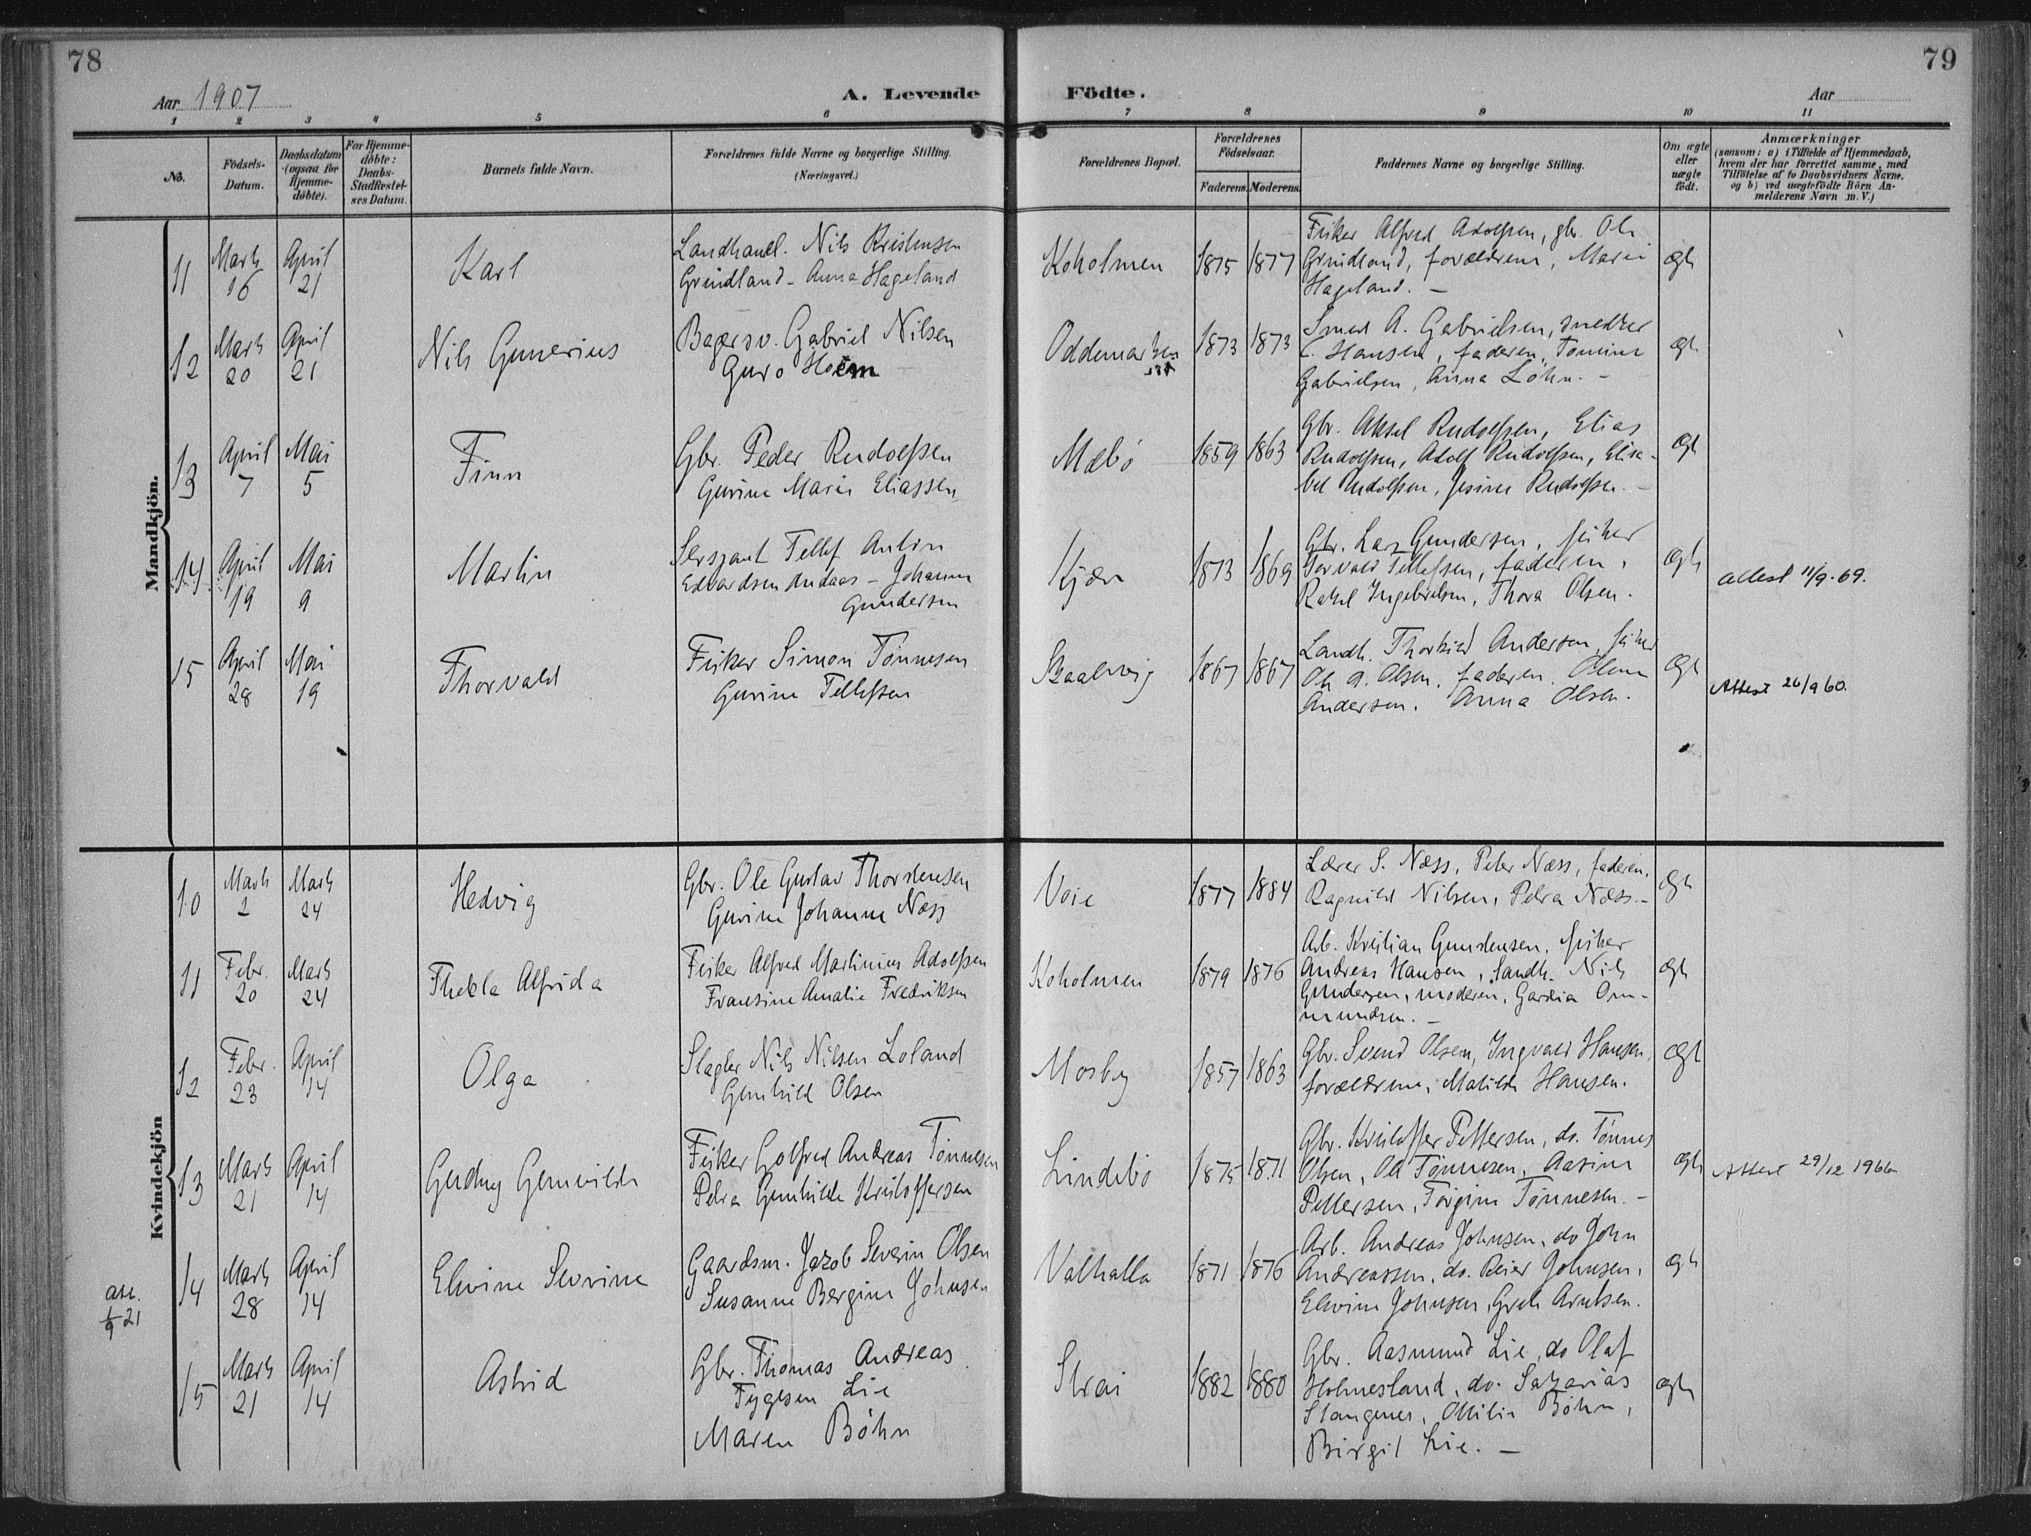 78
79
Aar 1907
A. Levende
Födte.
Aar
1 2 3 4 5 6 7 8 9 10 11
No.
Födsels-Datum.
Daabsdatum (ogsaa for Hjemme-döbte).
For Hjemme-döbte: Daabs-Stadfæstel-ses Datum.
Barnets fulde Navn.
Forældrenes fulde Navne og borgerlige Stilling.
(Næringsvei.)
Forældrenes Bopæl.
Forældrenes Födselsaar.
Faderens.
Moderens.
Faddernes Navne og borgerlige Stilling.
Om ægte eller uægte födt.
Anmærkninger
(saasom: a) i Tilfælde af Hjemmedaab,
hvem der har forrettet samme, med
Tilföielse af to Daabsvidners Navne,
og b) ved uægtefödte Börn An-
melderens Navn m. V.)
Mandkjön.
11 Marts 16 April 21 Karl
Landhandl. Nils Kristensen
Grindland - Anna Hageland
Koholmen 1875 1877
Fisker Alfred Adolfsen, gbr. Ole
Grindland, forældrene, Marie
Hageland. –
ægte
12 Marts 20 April 21 Nils Gunerius
Bagersv. Gabriel Nilsen
Guro
Oddemarken 1873 1873
Smed A. Gabrielsen, snedker
C. Hansen, faderen, Tomine
Gabrielsen, Anna Löhn. –
ægte
13 April 7 Mai 5 Finn
Gbr. Peder Rudolfsen
Gurine Marie Eliassen
Mæbø 1859 1863
Gbr. Aksel Rudolfsen, Elias
Rudolfsen, Adolf Rudolfsen, Elisa-
bet Rudolfsen, Jesine Rudolfsen. –
ægte
14 April 19 Mai 9 Martin
Sersjant Tellef Anton
Edvardsen Andaas – Johanne
Gundersen
Kjær 1873 1869
Gbr. Lars Gundersen, fisker
Torvald Tellefsen, faderen,
Rakel Ingebretsen, Thora Olsen.
ægte
Attest 11/9.69.
15 April 28 Mai 19 Thorvald
Fisker Simon Tønnesen
Gurine Tellefsen
Skaalevig 1867 1867
Landh. Thorkild Andersen, fisker
Ole A. Olsen, faderen, Olene
Andersen, Anna Olsen.
ægte
Attest 26/9 60.
Kvindekjön
10 Marts 2 Marts 24 Hedvig
Gbr. Ole Gustav Thorstensen
Gurine Johanne Næss
Voie 1877 1884
Lærer S. Næss, Peter Næss, faderen,
Ragnild Nilsen, Petra Næss. –
ægte
11 Febr. 20 Marts 24 Thekla Alfrida
Fisker Alfred Martinius Adolfsen
Fransine Amalie Fredriksen
Koholmen 1879 1876
Arb. Kristian Gundersen, fisker
Andreas Hansen, Landh. Nils
Gundersen, moderen, Gardia Om-
mundsen. –
ægte
12 Febr. 23 April 14 Olga
Slagter Nils Nilsen Loland
Gunhild Olsen
Mosby 1857 1863
Gbr. Svend Olsen, Ingvald Hansen,
forældrene, Matilde Hansen.
ægte
13 Marts 21 April 14 Gudny Gunvilde
Fisker Golfred Andreas Tønnesen
Petra Gunhilde Kristoffersen
Lindebø 1875 1871
Gbr. Kristoffer Pettersen, do. Tønnes
Olsen, Ole Tønnesen, Aasine
Pettersen, Torgine Tønnesen. –
ægte
Attest 29/12 1966
14 Marts 28 April 14 Elevine Sevrine
Gaardsm. Jakob Severin Olsen
Susanne Bergine Johnsen
Valhalla 1871 1876
Arb. Andreas Johnsen, do John
Andreassen, do. Reier Johnsen,
Elevine Johnsen, Grete Arntsen.
ægte
att.
1/9 21
15 Marts 21 April 14 Astrid
Gbr. Thomas Andreas
Tygesen Lie
Maren Bøhn
Strai 1882 1880
Gbr. Aasmund Lie, do Olaf
Holmesland, do. Sakarias
Stangenes, Otilie Bøhn,
Birgit Lie. –
ægte